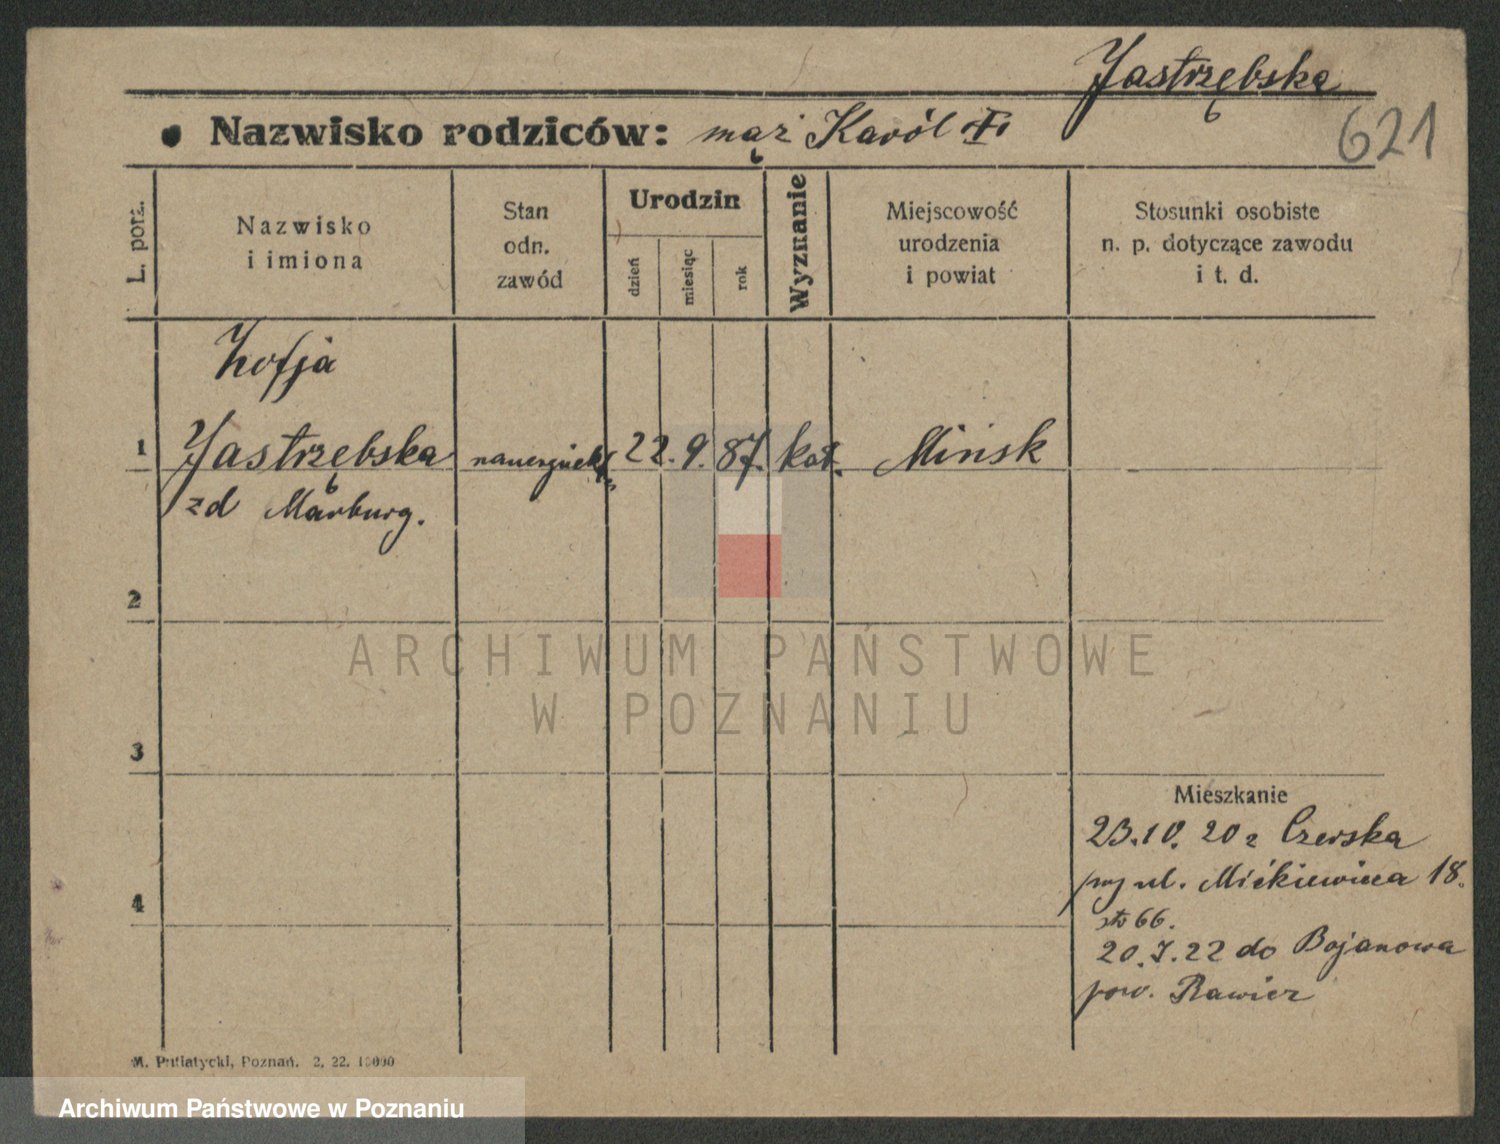 Jastrzębska
Nazwisko rodziców: mąż Karól
621
L. porz.
Nazwisko
i imiona
Stan
odn.
zawód
Urodzin
dzień
miesiąc
rok
Wyznanie
Miejscowość
urodzenia
i powiat
Stosunki osobiste
n. p. dotyczące zawodu
i t. d.
Zofja
1 Jastrzębska 22. 9. 87. kat. Mińsk
zd Marburg.
2
ARCHIWUM PAŃSTWOWE
W POZNANIU
3
Mieszkanie
23.10. 20 z Czerska
ul. Mićkiewicza 18.
66.
4
20.I.22 do Bojanowa
pow. Rawicz
M. Putiatycki, Poznań. 2, 22. 10000
Archiwum Państwowe w Poznaniu